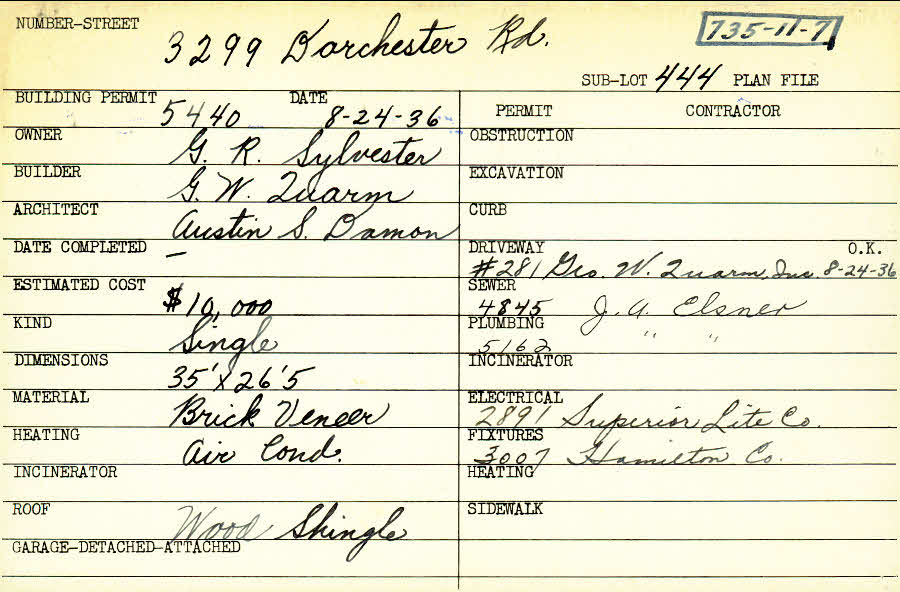 NUMBER-STREET 3299 Dorchester Rd. 735-11-7
SUB-LOT 444 PLAN FILE
BUILDING PERMIT 5440 DATE 8-24-36
OWNER G. R. Sylvester
BUILDER G. W. Quarm
ARCHITECT Austin S. Damon
DATE COMPLETED –
ESTIMATED COST $10,000
KIND Single
DIMENSIONS 35'x26'5
MATERIAL Brick Veneer
HEATING Air Cond.
INCINERATOR
ROOF Wood Shingle
GARAGE-DETACHED-ATTACHED
PERMIT CONTRACTOR
OBSTRUCTION
EXCAVATION
CURB
DRIVEWAY O.K.
#281 Geo. W. Quarm, Inc. 8-24-36
SEWER
4845 J. A. Elsner
PLUMBING
5162 " "
INCINERATOR
ELECTRICAL
2891 Superior Lite Co.
FIXTURES
3007 Hamilton Co.
HEATING
SIDEWALK